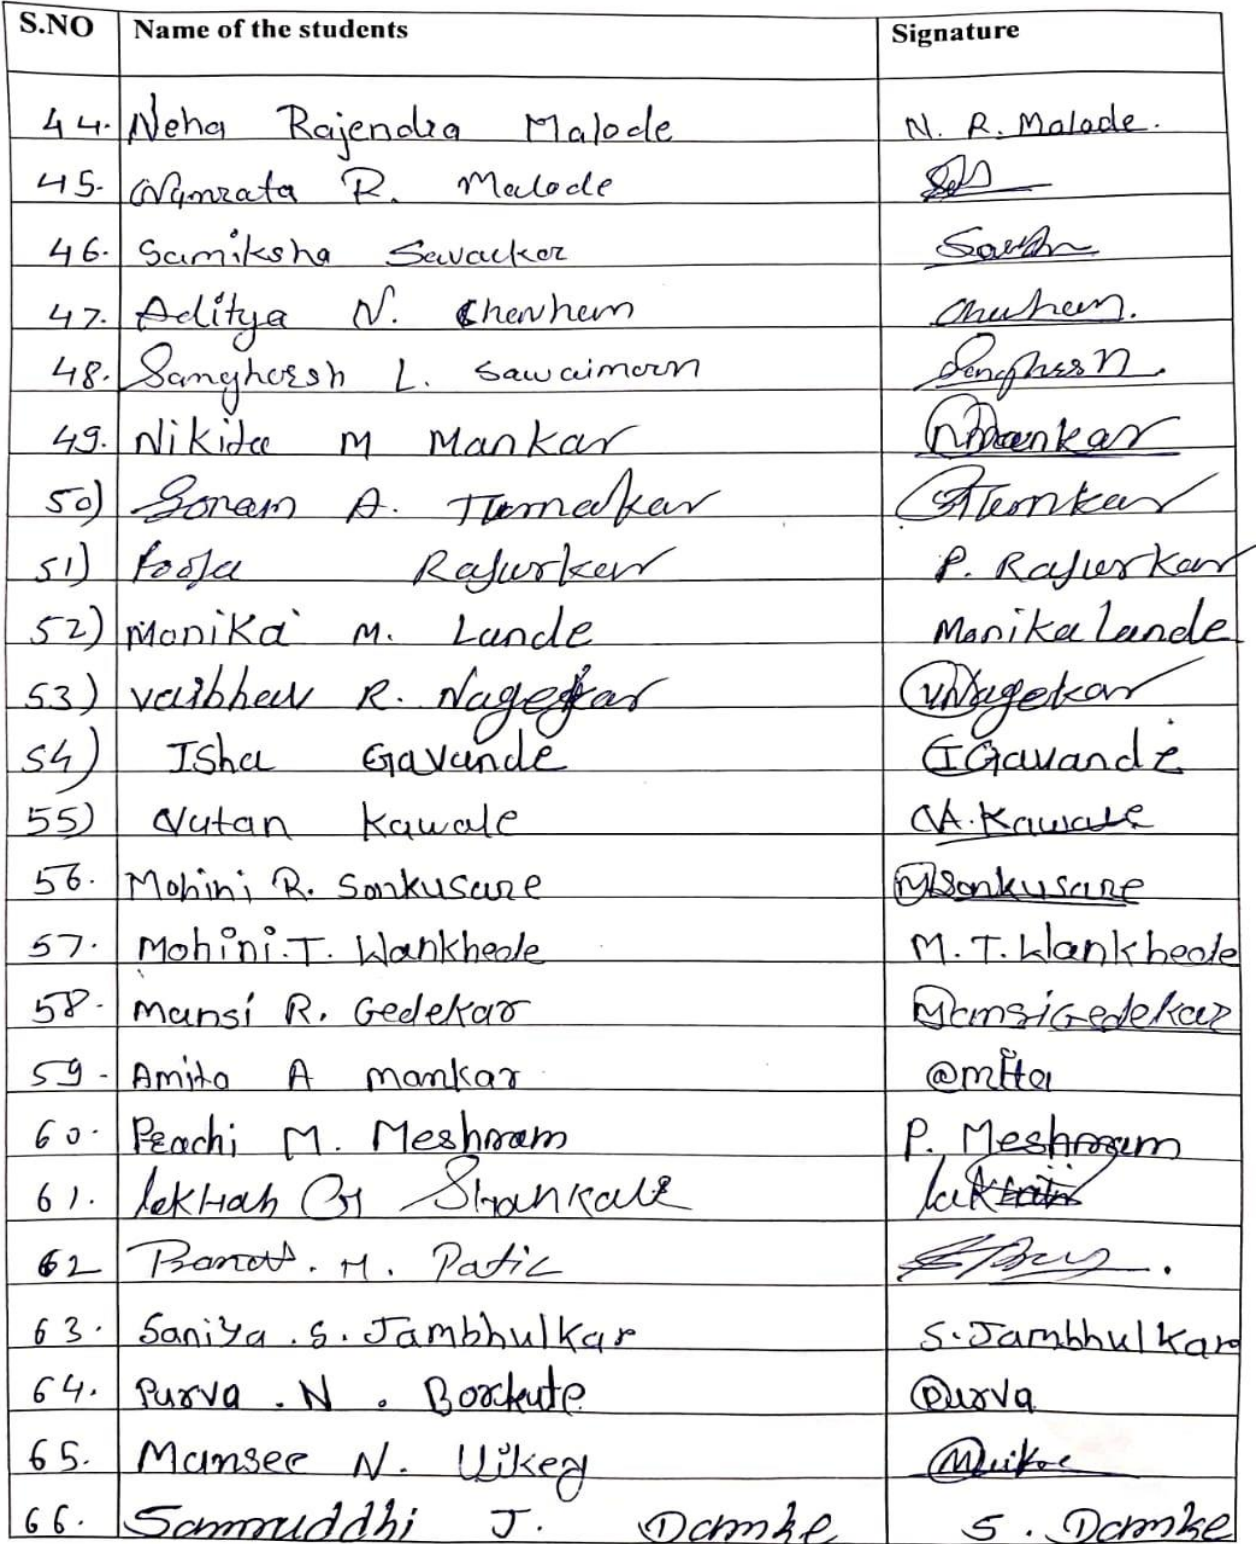 S.NO Name of the students Signature
44. Neha Rajendra Malode N. R. Malode.
45. Namrata R. Malode
46. Samiksha Savarkar
47. Aditya N. Chavhan Chavhan.
48. Sangharsh L. Sawaimoon
49. Nikita M Mankar nmankar
50) Sonam A. Tumadkar
51) Pooja Rajurkar P. Rajurkar
52) Monika M. Lande Monika Lande
53) vaibhav R. Nagekar VNagekar
54) Isha Gavande IGavande
55) Nutan Kawale NA. Kawale
56. Mohini R. Sonkusare MSonkusare
57. Mohini. T. Wankhede M. T. Wankhede
58. Mansi R. Gedekar Mansi Gedekar
59. Amita A mankar @mita
60. Prachi M. Meshram P. Meshram
61. lekhah G
62 M. Patil
63. Saniya. S. Jambhulkar S. Jambhulkar
64. Purva. N. Borkute Purva
65. Mansee N. Uikey
66. Sammruddhi J. Damke S. Damke